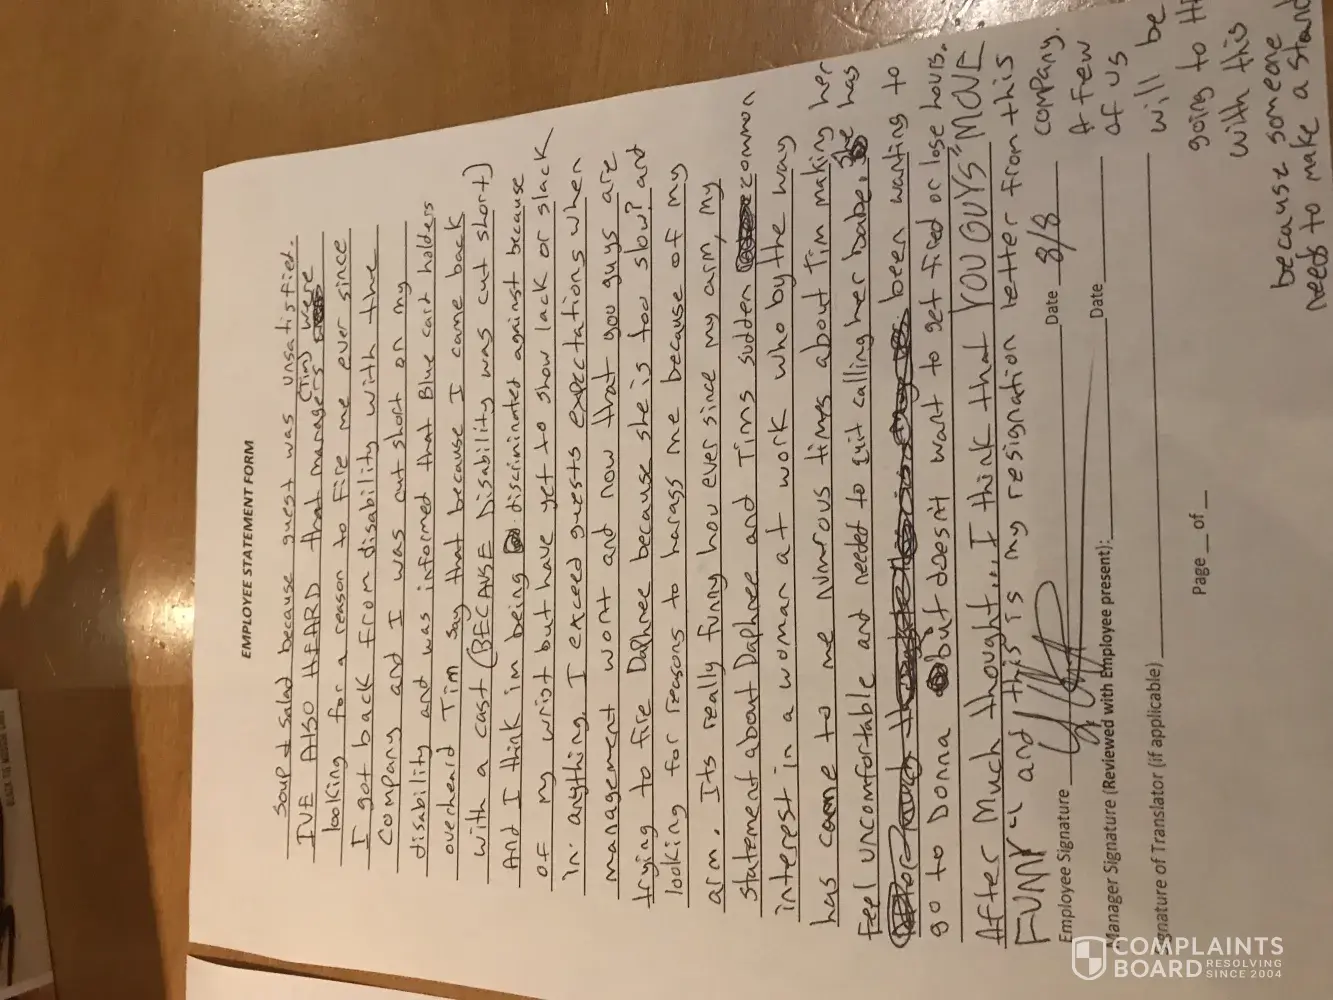 EMPLOYEE STATEMENT FORM
Soup & Salad because guest was unsatisfied.
IVE AlSO HEARD that managers (Tim) were
looking for a reason to fire me ever since
I got back from disability with the
company and I was cut short on my
disability and was informed that Blue card holders
overheard Tim say that because I came back
with a cast (BECAUSE Disability was cut short)
And I think im being discriminated against because
of my wrist but have yet to show lack or slack
in anything. I exceed guests expectations when
management wont and now that you guys are
trying to fire Daphnee because she is too slow? and
looking for reasons to harass me because of my
arm. Its really funny how ever since my arm, my
statement about Daphnee and Tims sudden common
interest in a woman at work who by the way
has come to me numrous times about Tim making her
feel uncomfortable and needed to quit calling her babe. She has
been wanting to
go to Donna but doesnt want to get fired or lose hours.
After Much thought... I think that YOU GUYS "MOVE
FUNNY" and this is my resignation letter from this
company.
A few
of us
will be
going to HR
with this
because someone
needs to make a stand
Employee Signature
Date 3/8
Manager Signature (Reviewed with Employee present):
Date
Signature of Translator (if applicable)
Page _ of _
COMPLAINTS
BOARD RESOLVING
SINCE 2004